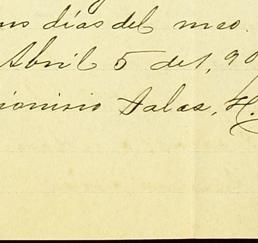 días del mes.
Abril 5 del, 90
ionisio Salas, H.